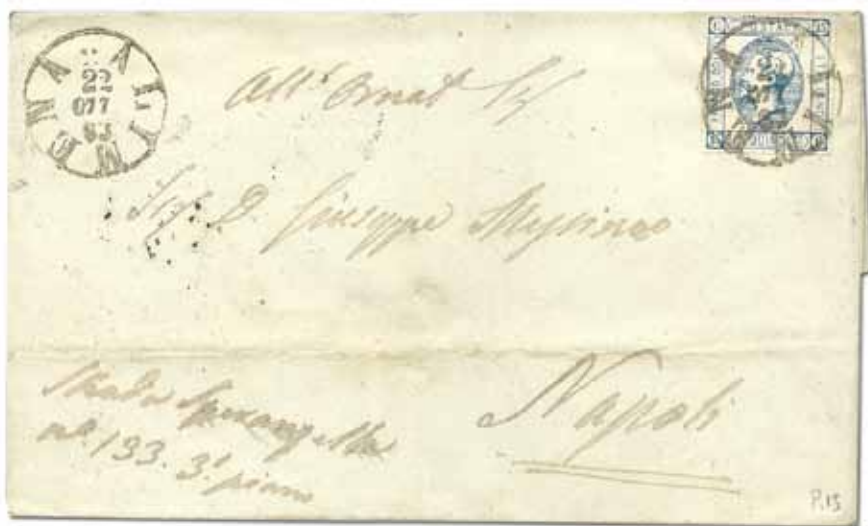 ALIMENA
22
OTT
63
All' Ornat. Sig
Sig. D. Giuseppe
Napoli
Strada Speranzella
n.° 133. 3.° piano
P.15